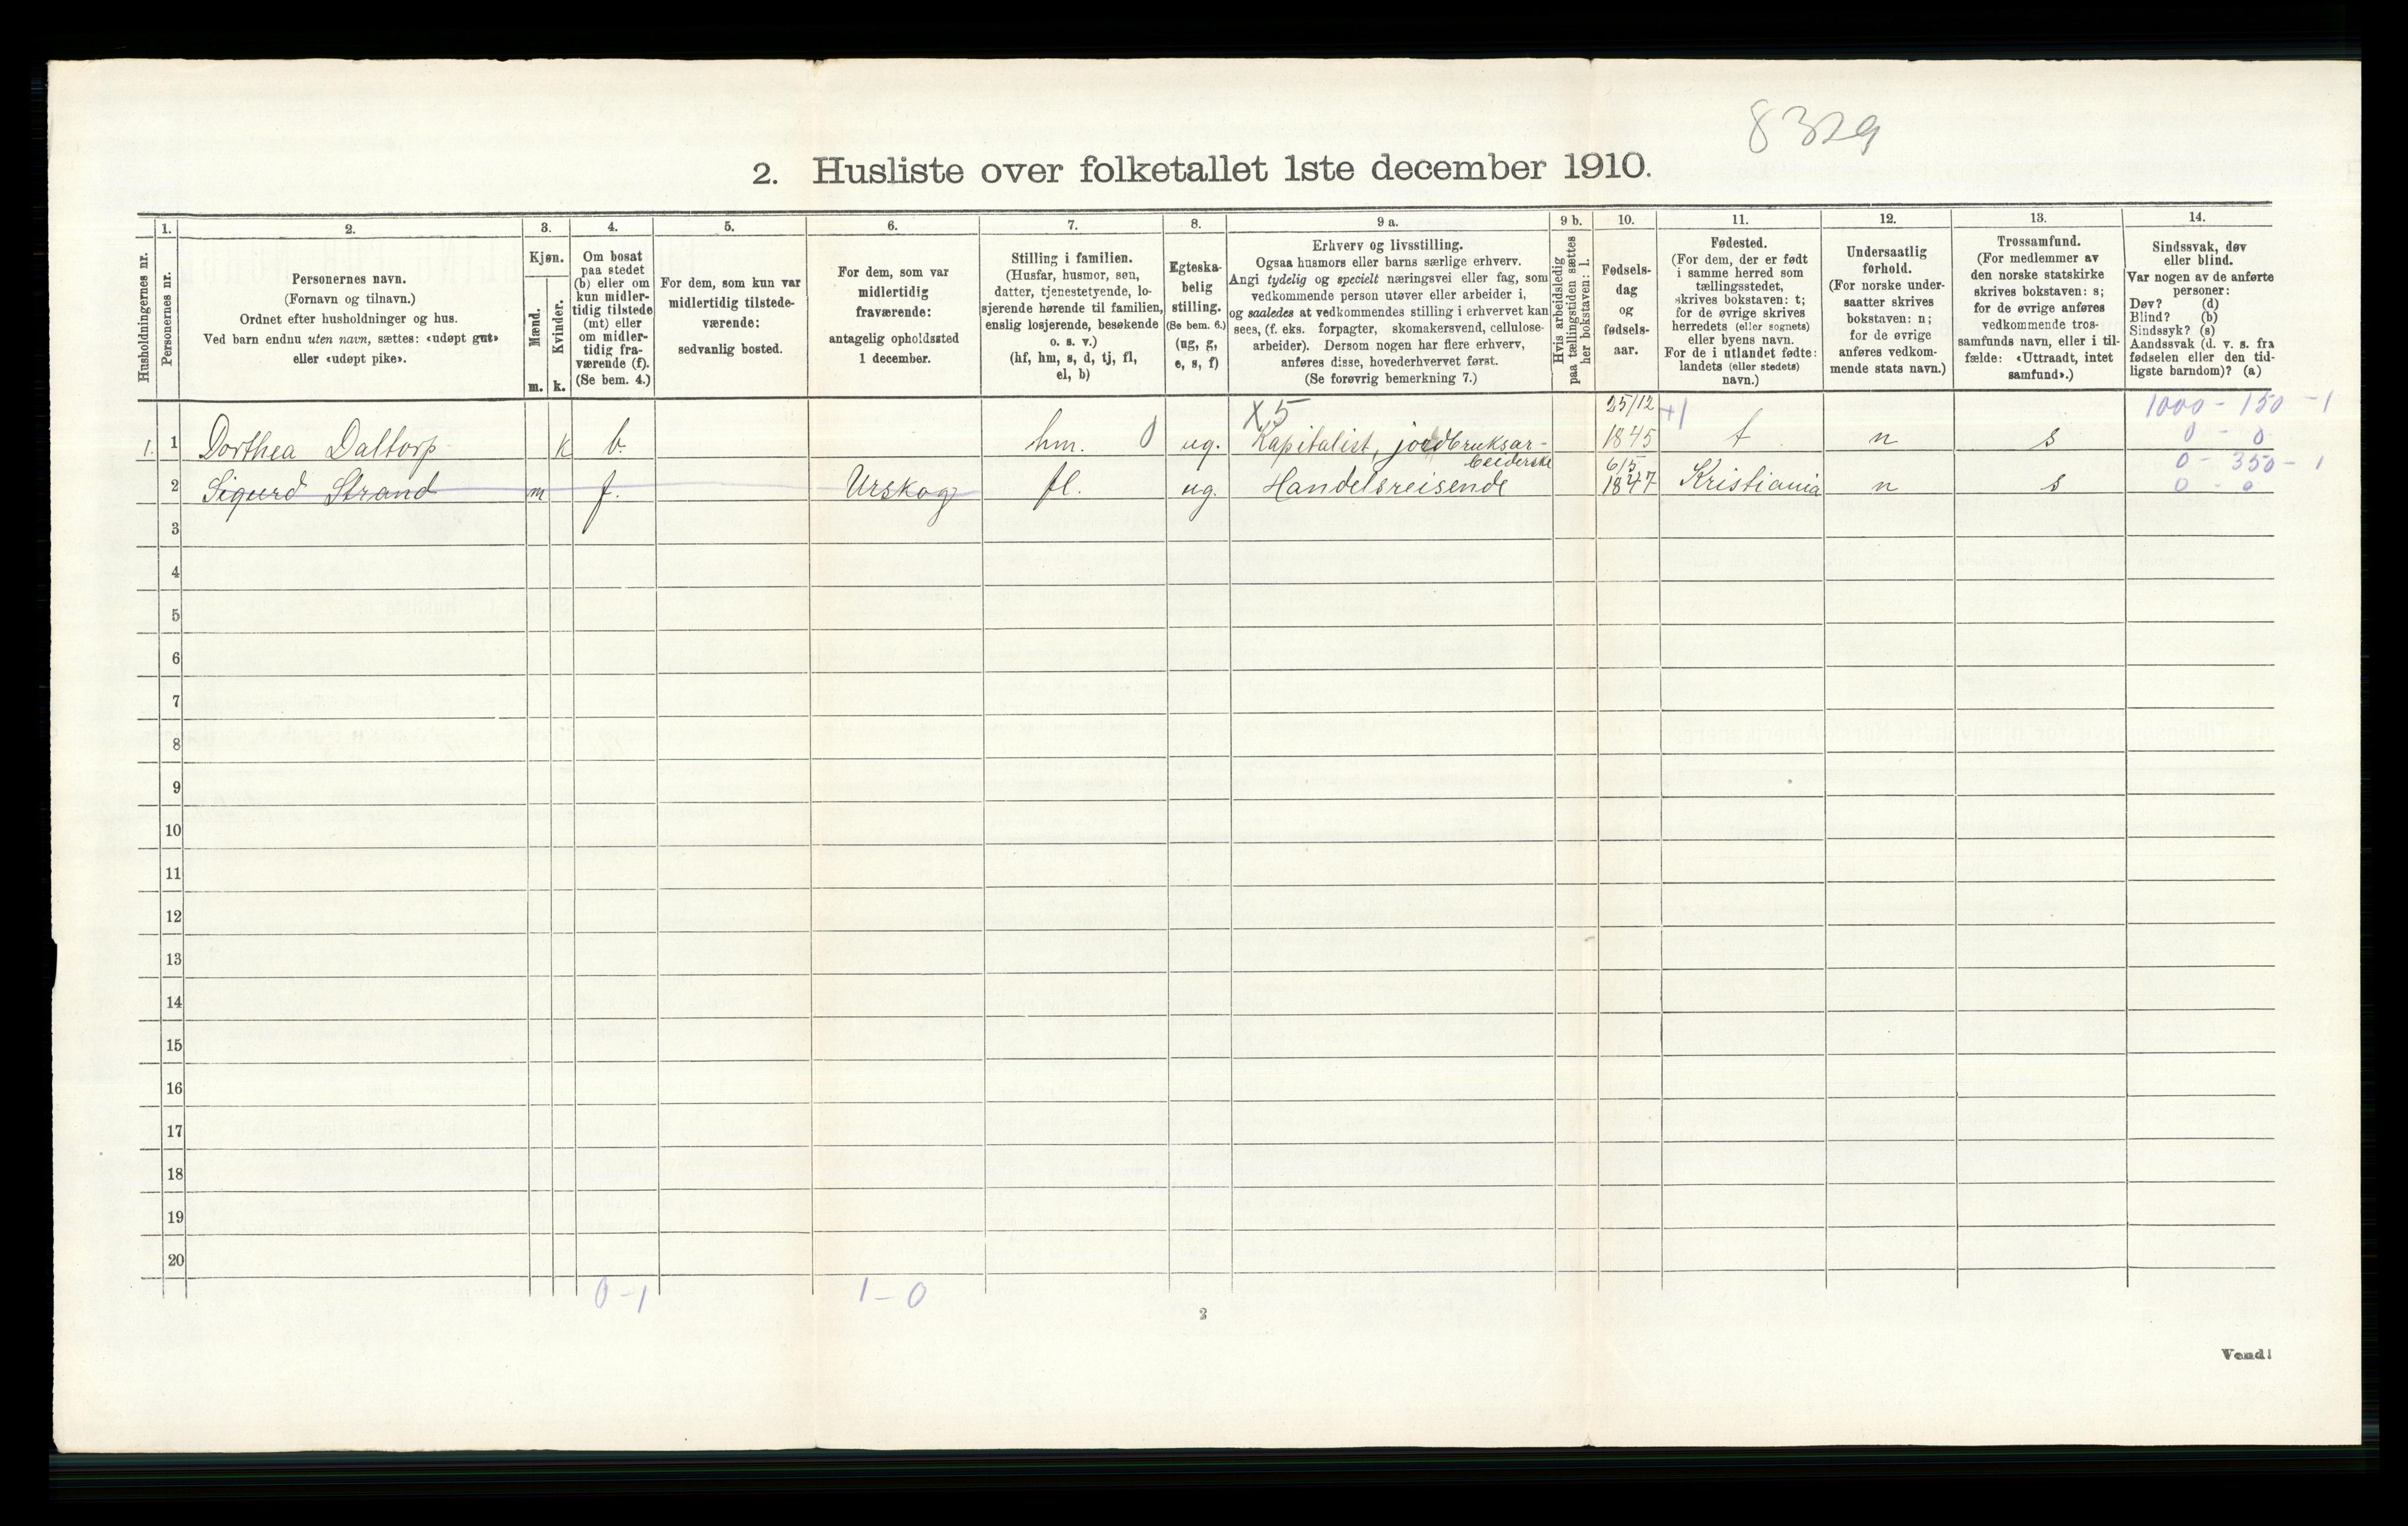 8329
2. Husliste over folketallet 1ste december 1910.
1. 2. 3. 4. 5. 6. 7. 8. 9 a. 9 b. 10. 11. 12. 13. 14.
Husholdningernes nr.
Personernes nr.
Personernes navn.
(Fornavn og tilnavn.)
Ordnet efter husholdninger og hus.
Ved barn endnu uten navn, sættes: «udøpt gut»
eller «udøpt pike».
Kjøn.
Mænd.
m.
Kvinder.
k.
Om bosat
paa stedet
(b) eller om
kun midler-
tidig tilstede
(mt) eller
om midler-
tidig fra-
værende (f).
(Se bem. 4.)
For dem, som kun var
midlertidig tilstede-
værende:
sedvanlig bosted.
For dem, som var
midlertidig
fraværende:
antagelig opholdssted
1 december.
Stilling i familien.
(Husfar, husmor, søn,
datter, tjenestetyende, lo-
sjerende hørende til familien,
enslig losjerende, besøkende
o. s. v.)
(hf, hm, s, d, tj, fl,
el, b)
Egteska-
belig
stilling.
(Se bem. 6.)
(ug, g,
e, s, f)
Erhverv og livsstilling.
Ogsaa husmors eller barns særlige erhverv.
Angi tydelig og specielt næringsvei eller fag, som
vedkommende person utøver eller arbeider i,
og saaledes at vedkommendes stilling i erhvervet kan
sees, (f. eks. forpagter, skomakersvend, cellulose-
arbeider). Dersom nogen har flere erhverv,
anføres disse, hovederhvervet først.
(Se forøvrig bemerkning 7.)
Hvis arbeidsledig
paa tællingstiden sættes
her bokstaven: l.
Fødsels-
dag
og
fødsels-
aar.
Fødested.
(For dem, der er født
i samme herred som
tællingsstedet,
skrives bokstaven: t;
for de øvrige skrives
herredets (eller sognets)
eller byens navn.
For de i utlandet fødte:
landets (eller stedets)
navn.)
Undersaatlig
forhold.
(For norske under-
saatter skrives
bokstaven: n;
for de øvrige
anføres vedkom-
mende stats navn.)
Trossamfund.
(For medlemmer av
den norske statskirke
skrives bokstaven: s;
for de øvrige anføres
vedkommende tros-
samfunds navn, eller i til-
fælde: «Uttraadt, intet
samfund».)
Sindssvak, døv
eller blind.
Var nogen av de anførte
personer:
Døv? (d)
Blind? (b)
Sindssyk? (s)
Aandssvak (d. v. s. fra
fødselen eller den tid-
ligste barndom)? (a)
X5 25/12 +1 1000 - 150 - 1
1. 1 Dorthea Daltorp k b. hm. 0 ug. Kapitalist, jordbruksar- 1845 t n s 0 - 0
beiderske 6/5 0 - 350 - 1
2 Sigurd Strand m f. Urskog fl. ug. Handelsreisende 1847 Kristiania n s 0 - 0
3
4
5
6
7
8
9
10
11
12
13
14
15
16
17
18
19
20
0 - 1 1 - 0
2
Vend!